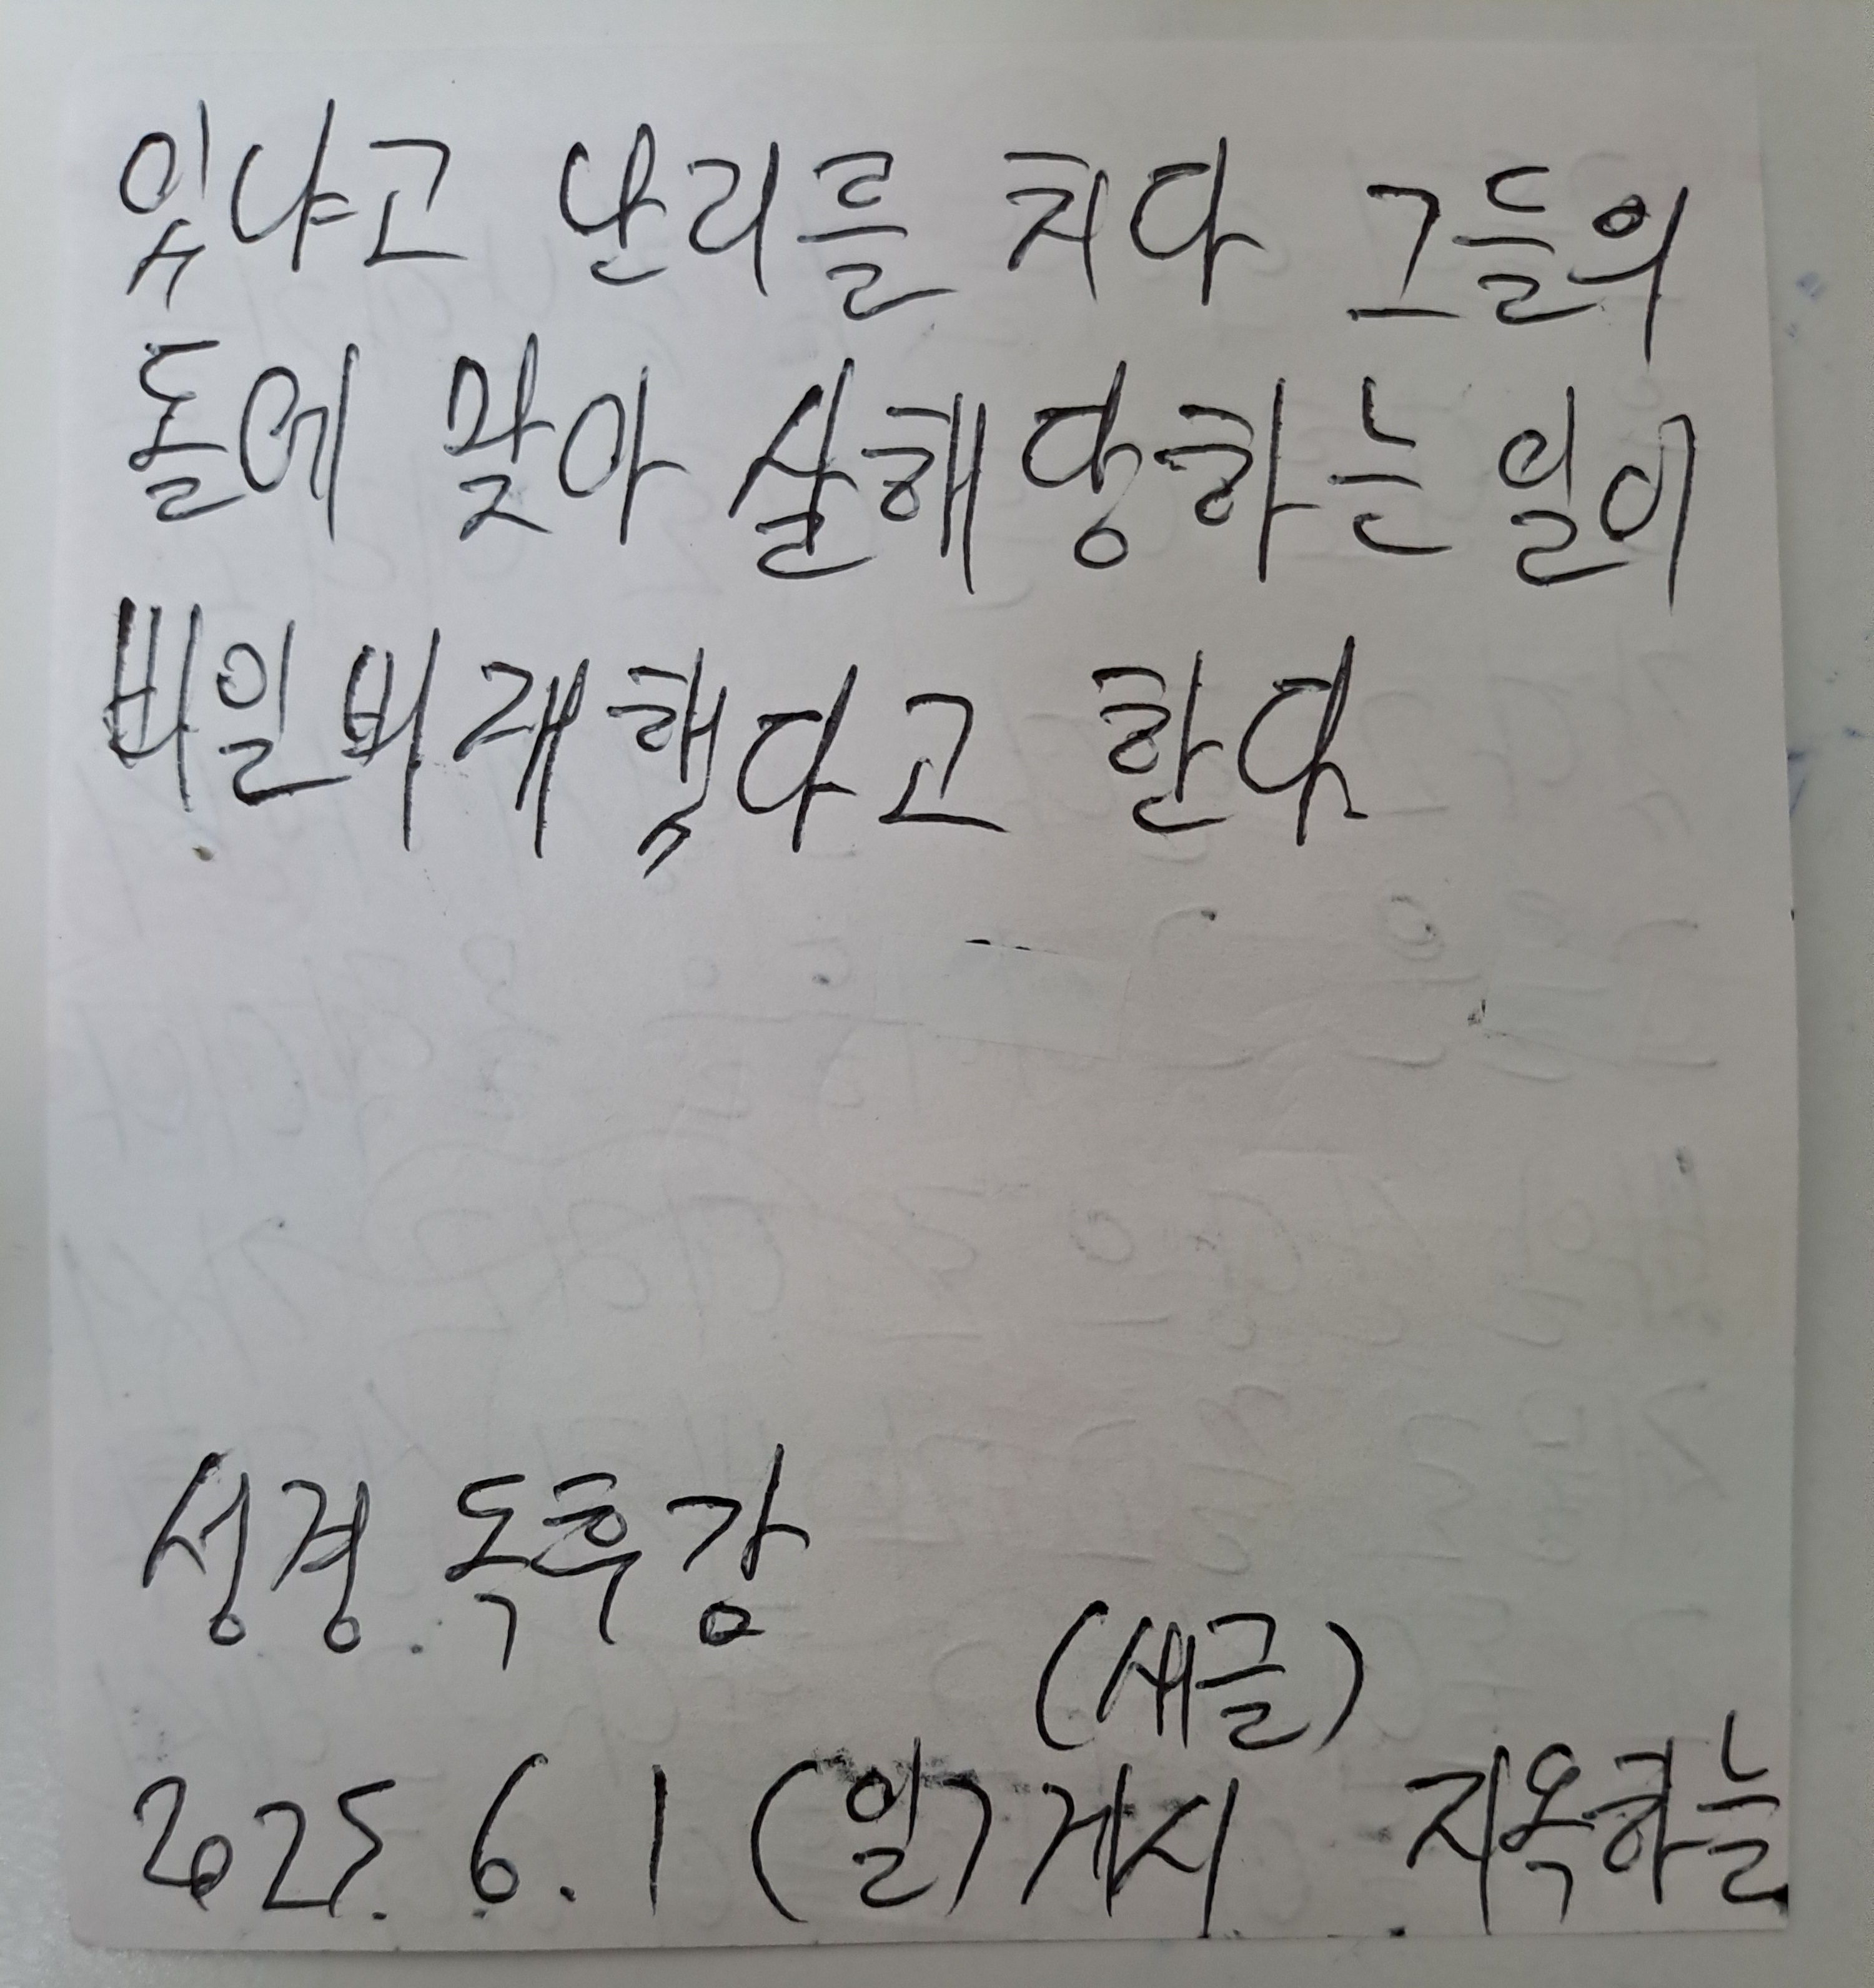 있냐고 난리를 치다 그들의
돌에 맞아 살해 당하는 일이
비일비재했다고 한다.
성경 독후감
(새글)
2025. 6. 1 (일) 게시 지옥하늘